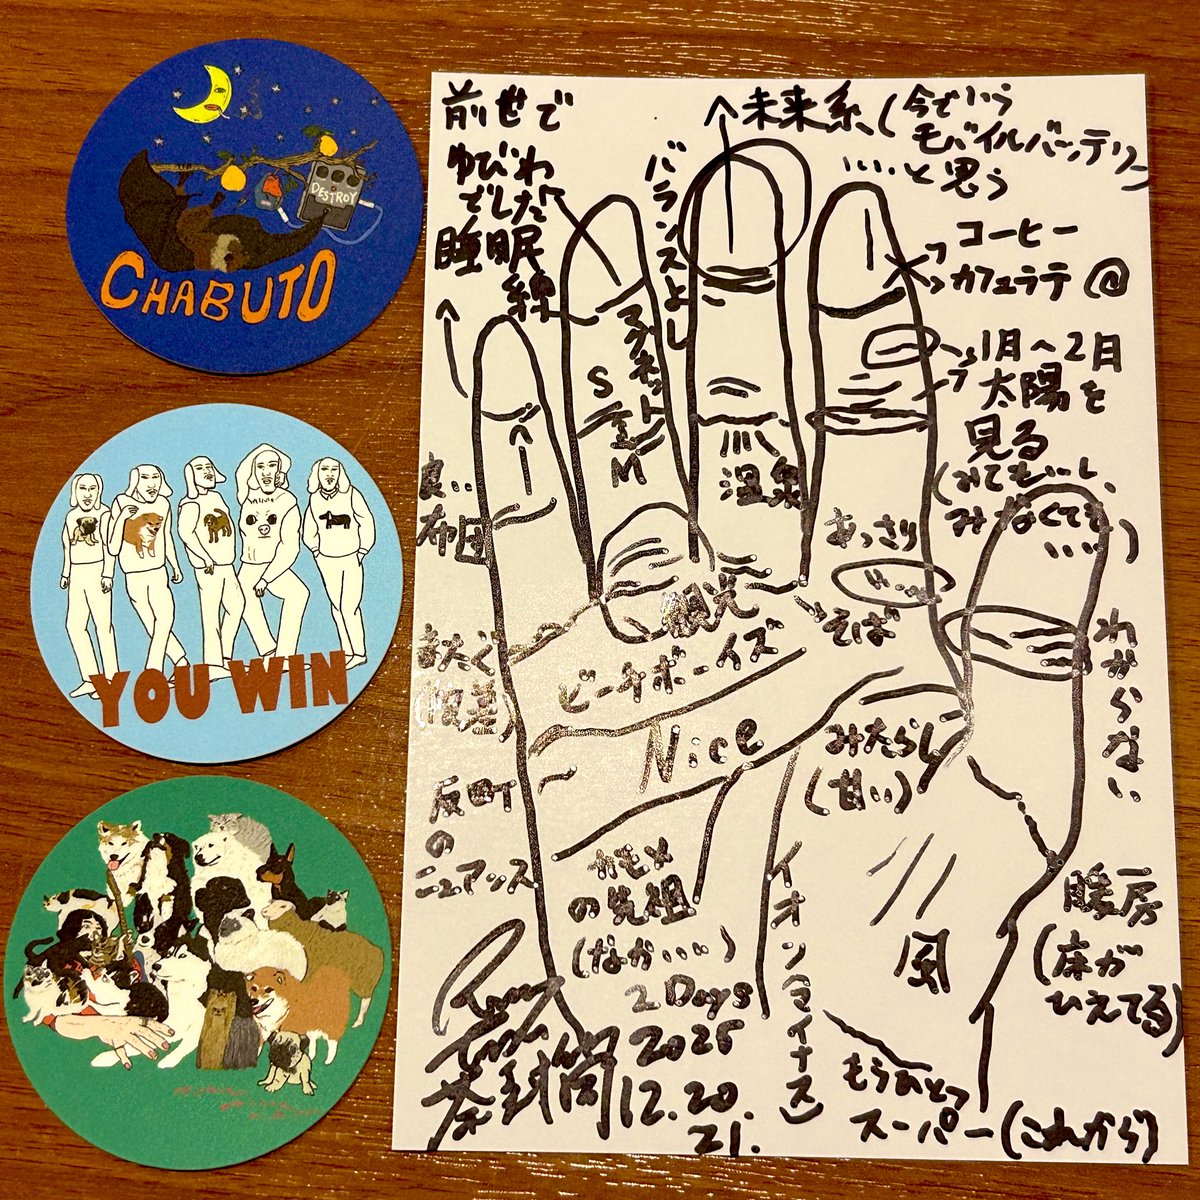 DESTROY
CHABUTO
YOU WIN
前世で
ゆびわ
でした
睡眠
線
バランスよし
未来系(今でいう
モバイルバッテリー)
……と思う
コーヒー
カフェラテ@
1月〜2月
太陽を
見る
(みてもいいし、
みなくても
……)
マグネット
S
M
温泉
良い
布団
あっさり
そば
観光
ビーチボーイズ
Nice
みたらし
(甘い)
わからない
反町
の
ニュアンス
カモメ
の先祖
(なかいい)
イオン(マイナス)
風
暖房
(床が
ひえてる)
もうひとつ
スーパー(これから)
2Days
茶封筒
2025
12.20.
21.